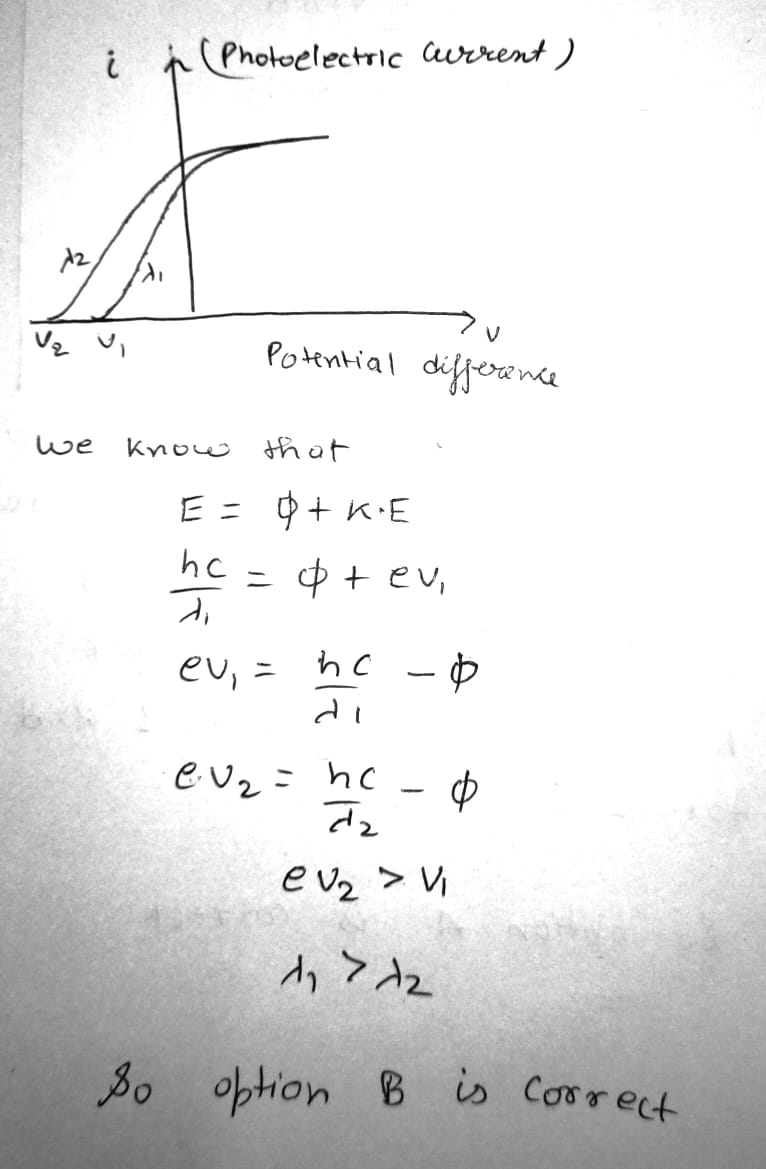 i (Photoelectric Current)
λ2
λ1
V2 V1
V
Potential difference
We know that
E = ϕ + K·E
hc/λ1 = ϕ + eV1
eV1 = hc/λ1 - ϕ
eV2 = hc/λ2 - ϕ
eV2 > V1
λ1 > λ2
So option B is Correct